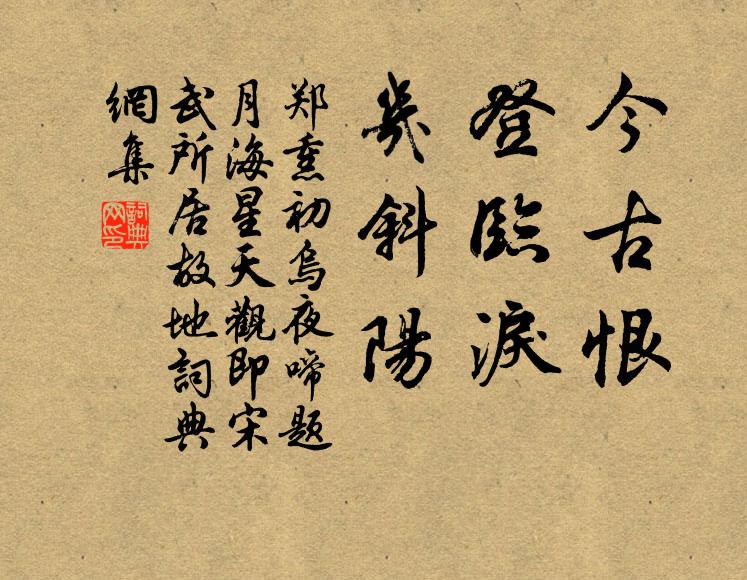 今古恨
登臨淚
幾斜陽
郑熏初烏夜啼题
月海星天觀即宋
武所居故地詞典
網集
詞典
网印